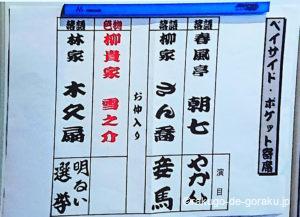 ベイサイド・ポケット寄席
演目
落語 春風亭 朝七 やかん
落語 柳家 さん喬 妾馬
お仲入り
色物 柳貴家 雪之介
落語 林家 木久扇 明るい選挙
rakugo-de-goraku.jp